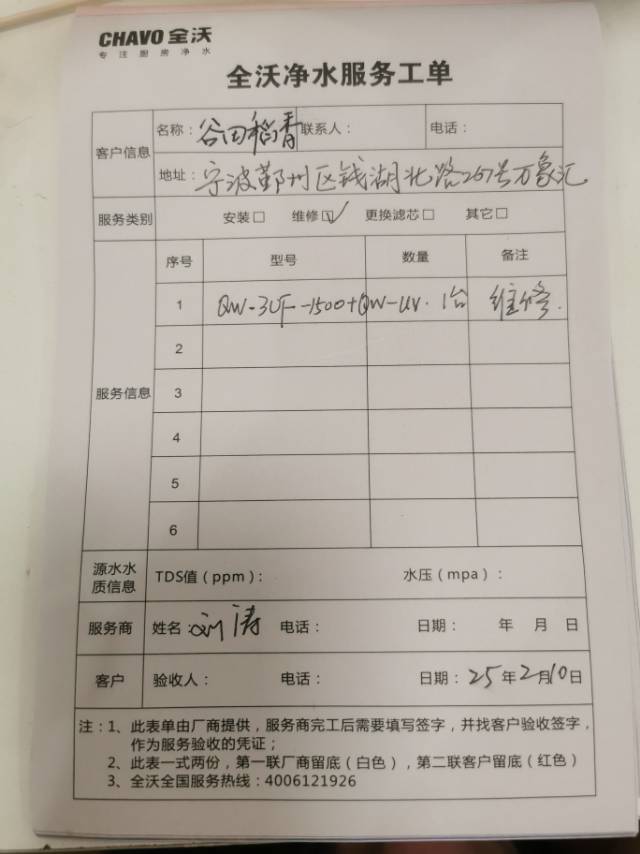 CHAVO 全沃
专注厨房净水
全沃净水服务工单
客户信息
名称：谷田稻香 联系人： 电话：
地址：宁波鄞州区钱湖北路267号万象汇
服务类别 安装□ 维修☑ 更换滤芯□ 其它□
服务信息
序号 型号 数量 备注
1 QW-3UF-1500+QW-UV. 1台 维修.
2
3
4
5
6
源水水质信息 TDS值（ppm）： 水压（mpa）：
服务商 姓名：刘涛 电话： 日期： 年 月 日
客户 验收人： 电话： 日期：25年2月10日
注：1、此表单由厂商提供，服务商完工后需要填写签字，并找客户验收签字，
作为服务验收的凭证；
2、此表一式两份，第一联厂商留底（白色），第二联客户留底（红色）
3、全沃全国服务热线：4006121926